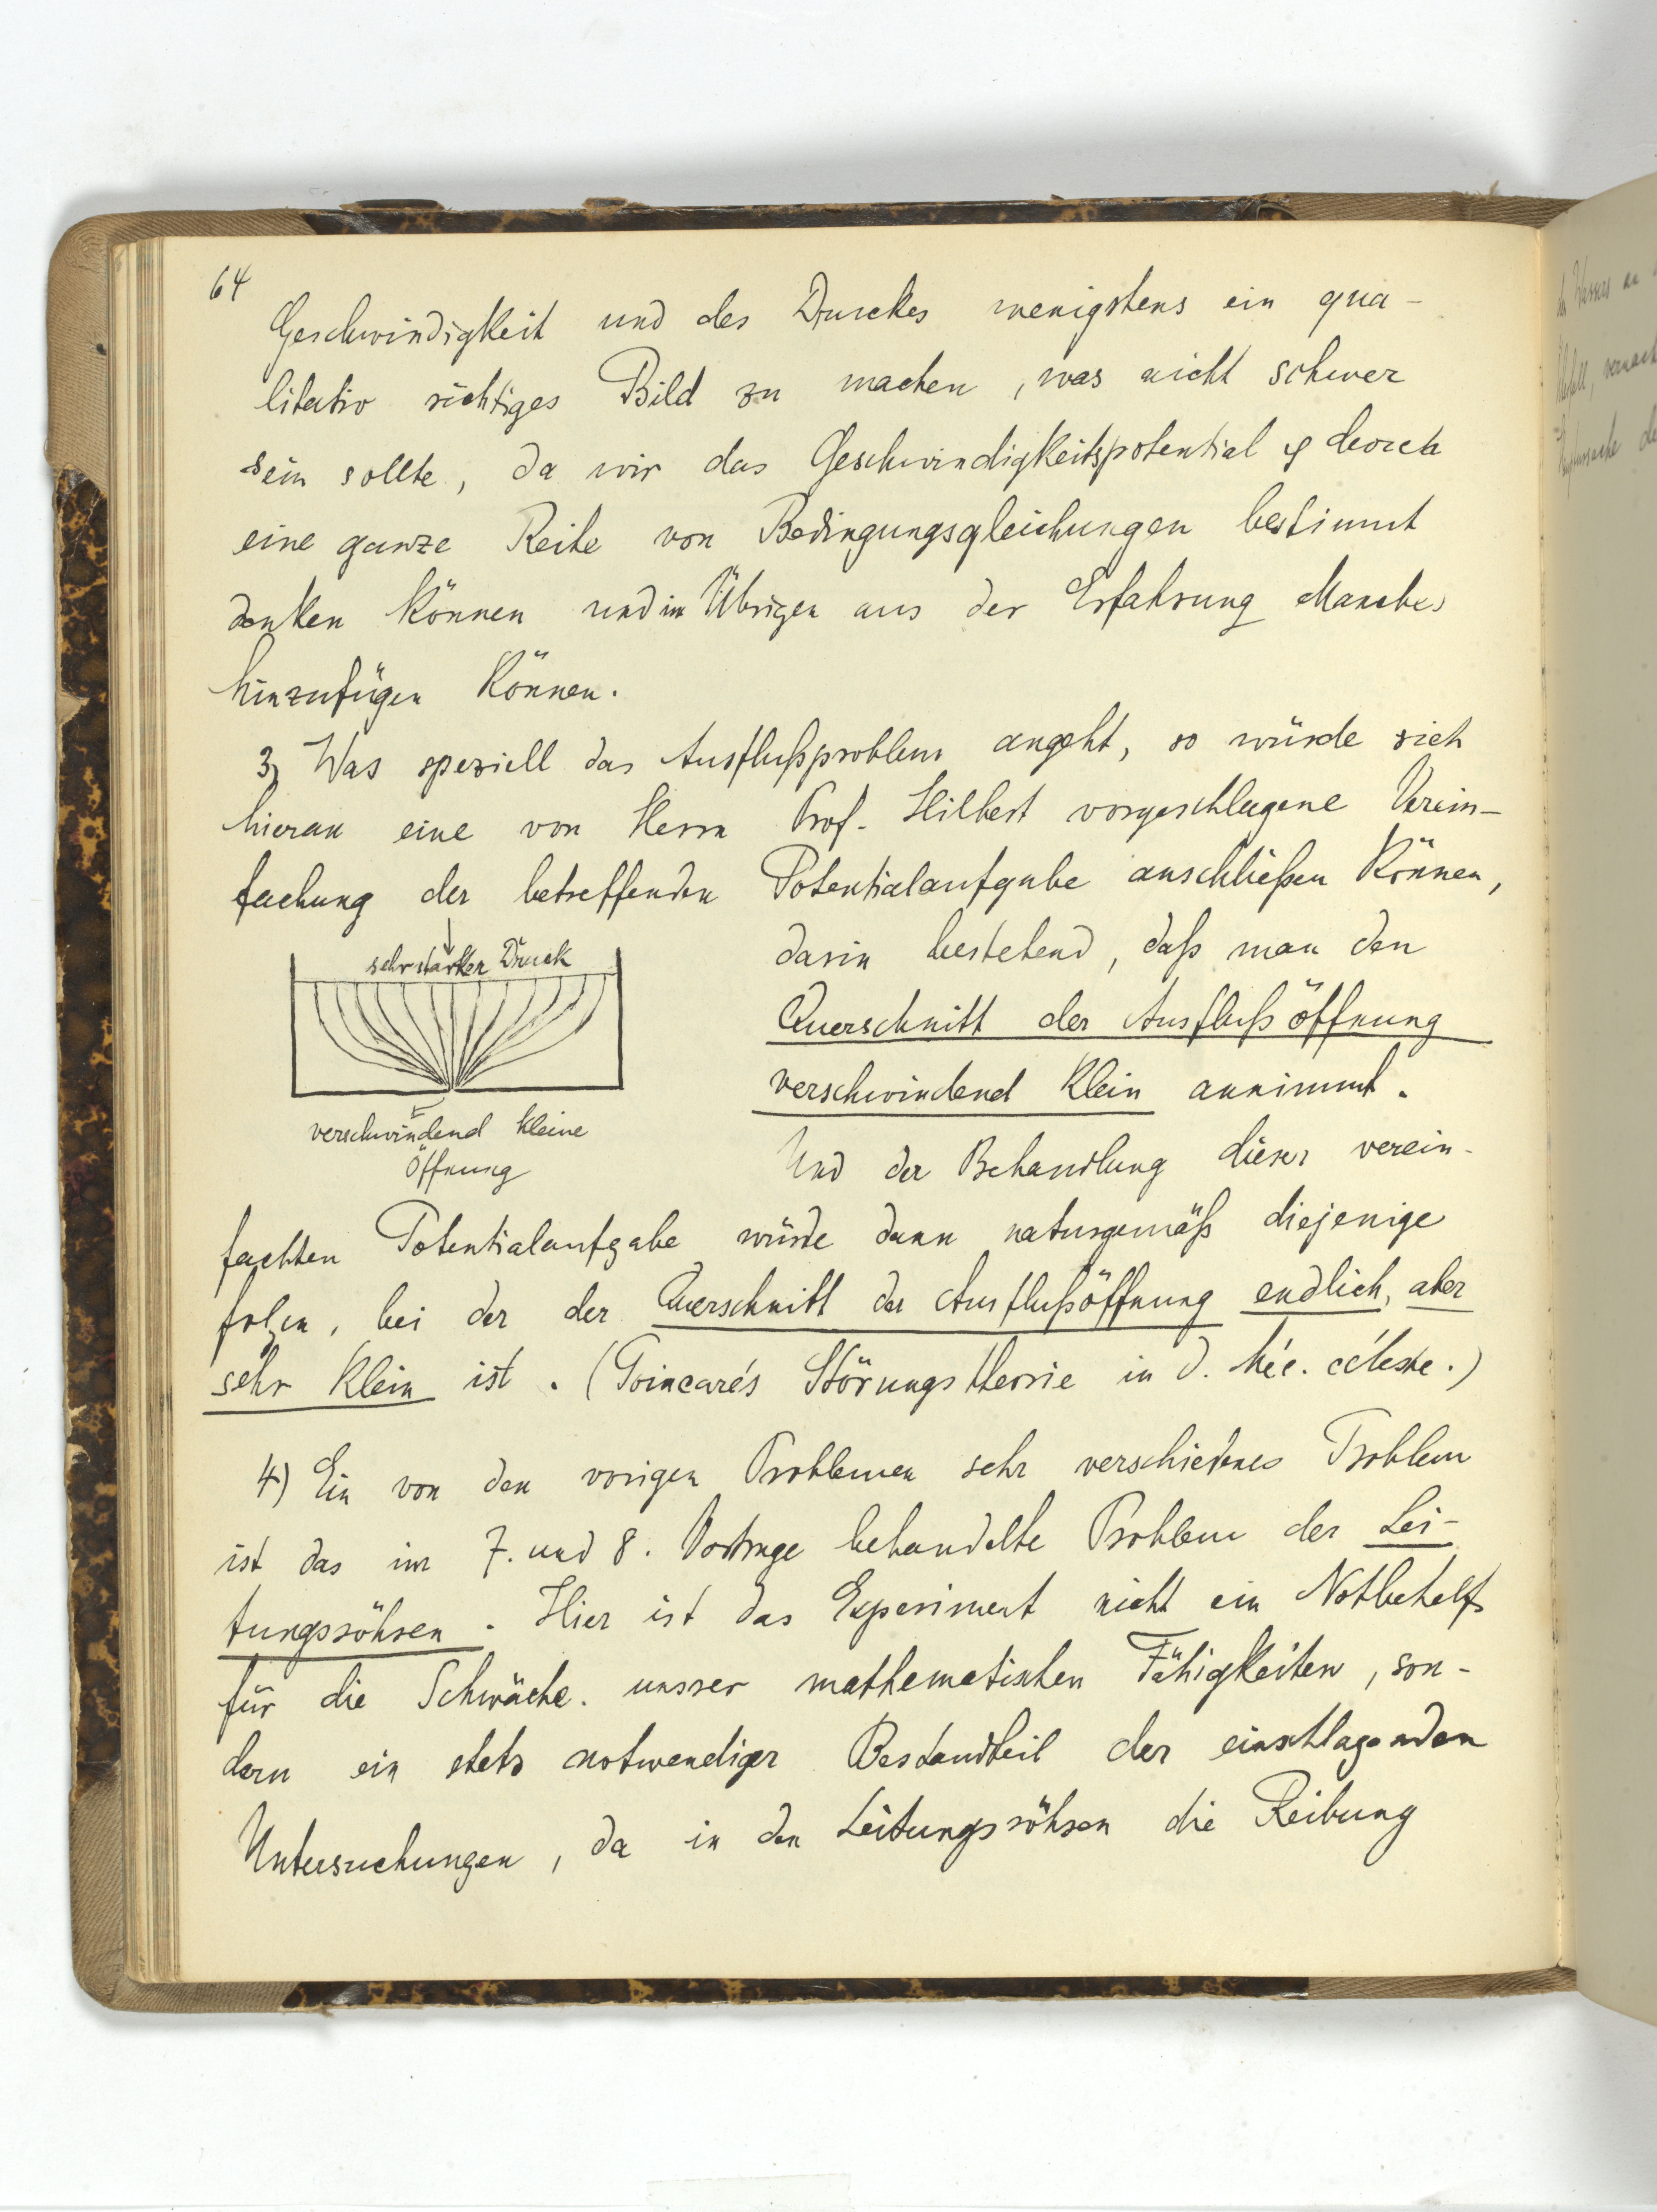 64
Geschwindigkeit und des Druckes wenigstens ein qua-
litativ richtiges Bild zu machen, was nicht schwer
sein sollte, da wir das Geschwindigkeitspotential φ durch
eine ganze Reihe von Bedingungsgleichungen bestimmt
denken können und im Übrigen aus der Erfahrung Manches
hinzufügen können.
3) Was speziell das Ausflußproblem angeht, so würde sich
hieran eine von Herrn Prof. Hilbert vorgeschlagene Verein-
fachung der betreffenden Potentialaufgabe anschließen können,
sehr starker Druck
verschwindend kleine
Öffnung
darin bestehend, daß man den
Querschnitt der Ausflußöffnung
verschwindend klein annimmt.
Und der Behandlung dieser verein-
fachten Potentialaufgabe würde dann naturgemäß diejenige
folgen, bei der der Querschnitt der Ausflußöffnung endlich, aber
sehr klein ist. (Poincaré's Störungstheorie in d. Méc. céleste.)
4) Ein von den vorigen Problemen sehr verschiedenes Problem
ist das im 7. und 8. Vortrage behandelte Problem der Lei-
tungsröhren. Hier ist das Experiment nicht ein Notbehelf
für die Schwäche unsrer mathematischen Fähigkeiten, son-
dern ein stets notwendiger Bestandteil der einschlagenden
Untersuchungen, da in den Leitungsröhren die Reibung